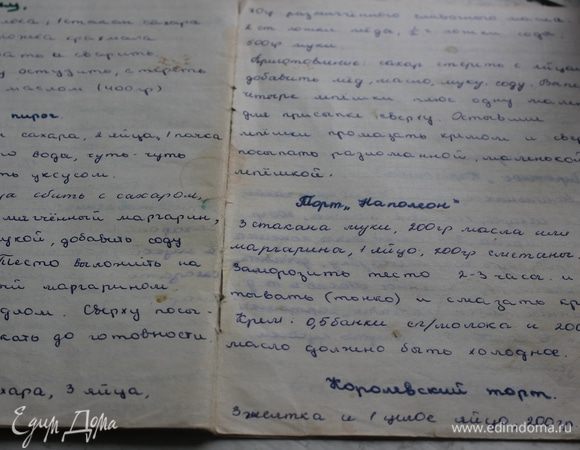 ему.
лока, 1 стакан сахара
ложка крахмала
вать и сварить
у остудить, стереть
маслом (400гр)
пирог.
н сахара, 2 яйца, 1 пачка
го вода, чуть-чуть
ть уксусом.
ра сбить с сахаром,
мягчённый маргарин,
укой, добавить соду
Тесто выложить на
ный маргарином
длом. Сверху посы-
кать до готовности
хара, 3 яйца,
размягчённого сливочного масла
2 ст ложки мёда, соды
500гр муки
Приготовление: сахар стереть с яйцами
добавить мёд, масло, муку, соду.
четыре лепёшки плюс одну
для присыпки сверху. Остывшие
лепёшки промазать кремом и
посыпать разломанной, маленькой
лепёшкой.
Торт „Наполеон"
3 стакана муки, 200гр масла или
маргарина, 1 яйцо, 200гр сметаны.
Заморозить тесто 2-3 часа и
(тонко) и смазать
Крем: 0,5 банки сг/молока и 200
масло должно быть холодное.
Королевский торт.
3 желтка и 1 целое яйцо, 200гр
Едим Дома
www.edimdoma.ru